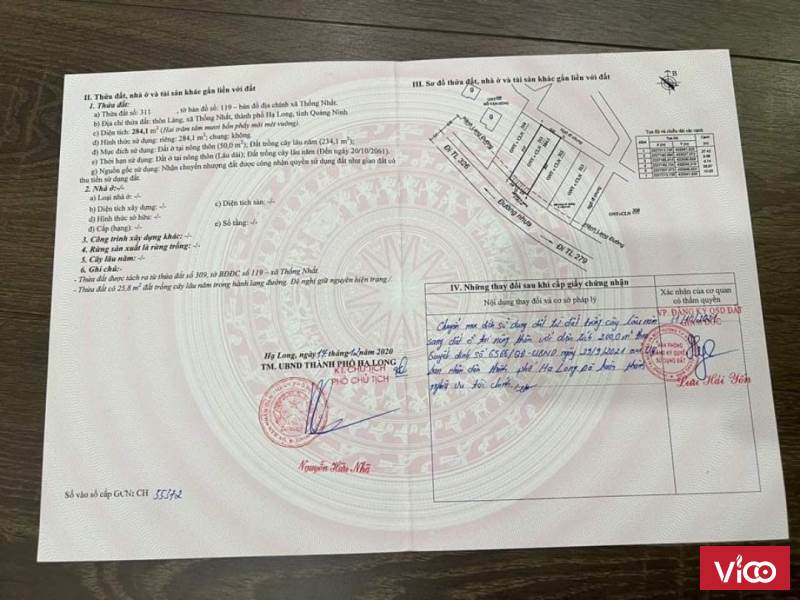 II. Thửa đất, nhà ở và tài sản khác gắn liền với đất
1. Thửa đất:
a) Thửa đất số: 311 , tờ bản đồ số: 119 – bản đồ địa chính xã Thống Nhất.
b) Địa chỉ thửa đất: thôn Làng, xã Thống Nhất, thành phố Hạ Long, tỉnh Quảng Ninh
c) Diện tích: 284,1 m² (Hai trăm tám mươi bốn phẩy một mét vuông)
d) Hình thức sử dụng: riêng: 284,1 m²; chung: không.
đ) Mục đích sử dụng: Đất ở tại nông thôn (50,0 m²); Đất trồng cây lâu năm (234,1 m²).
e) Thời hạn sử dụng: Đất ở tại nông thôn (Lâu dài); Đất trồng cây lâu năm (Đến ngày 20/10/2061).
g) Nguồn gốc sử dụng: Nhận chuyển nhượng đất được công nhận quyền sử dụng đất như giao đất có
thu tiền sử dụng đất.
2. Nhà ở:-/-
a) Loại nhà ở: -/-
b) Diện tích xây dựng: -/-
c) Diện tích sàn: -/-
d) Hình thức sở hữu: -/-
đ) Cấp (hạng): -/-
e) Số tầng: -/-
3. Công trình xây dựng khác: -/-
4. Rừng sản xuất là rừng trồng: -/-
5. Cây lâu năm: -/-
6. Ghi chú:
- Thửa đất được tách ra từ thửa đất số 309, tờ BĐĐC số 119 – xã Thống Nhất.
- Thửa đất có 25,8 m² đất trồng cây lâu năm trong hành lang đường. Đề nghị giữ nguyên hiện trạng./
Hạ Long, ngày 14 tháng 12 năm 2020
TM. UBND THÀNH PHỐ HẠ LONG
KT. CHỦ TỊCH
PHÓ CHỦ TỊCH
Nguyễn Hữu Nhã
Số vào sổ cấp GCN: CH 55372
III. Sơ đồ thửa đất, nhà ở và tài sản khác gắn liền với đất
B
Đi TL 326
Đường nhựa
Đi TL 279
IV. Những thay đổi sau khi cấp giấy chứng nhận
Nội dung thay đổi và cơ sở pháp lý
Xác nhận của cơ quan
có thẩm quyền
Chuyển mục đích sử dụng đất từ đất trồng cây lâu năm
sang đất ở tại nông thôn với diện tích 200,0 m² theo
Quyết định số 6566/QĐ-UBND ngày 27/9/2021 của
ban nhân dân thành phố Hạ Long Đã hoàn thành
nghĩa vụ tài chính
VP. ĐĂNG KÝ QSD ĐẤT
Lưu Hải Yến
ViCO